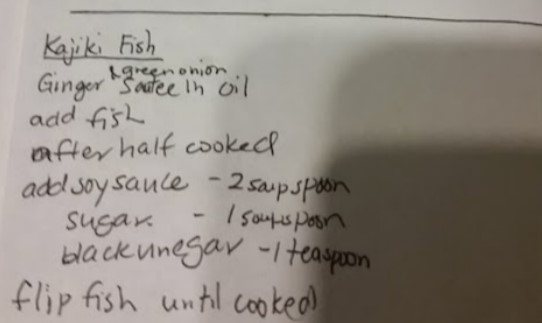 Kajiki Fish
& green onion
Ginger Sautee in oil
add fish
after half cooked
add soy sauce - 2 soupspoon
sugar - 1 soupspoon
black vinegar - 1 teaspoon
flip fish until cooked